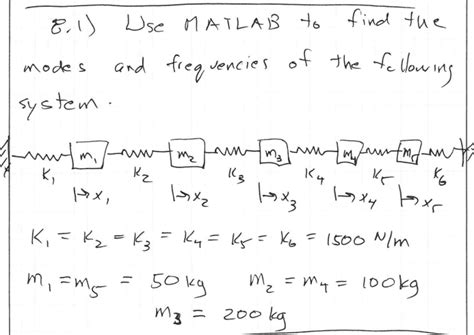 8.1) Use MATLAB to find the
modes and frequencies of the following
system.
m₁ m₂ m₃ m₄ m₅
K₁ K₂ K₃ K₄ K₅ K₆
|→x₁ |→x₂ |→x₃ |→x₄ |→x₅
K₁ = K₂ = K₃ = K₄ = K₅ = K₆ = 1500 N/m
m₁ = m₅ = 50 kg m₂ = m₄ = 100 kg
m₃ = 200 kg